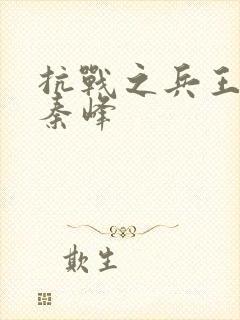 抗戰之兵王
秦峰
欺生